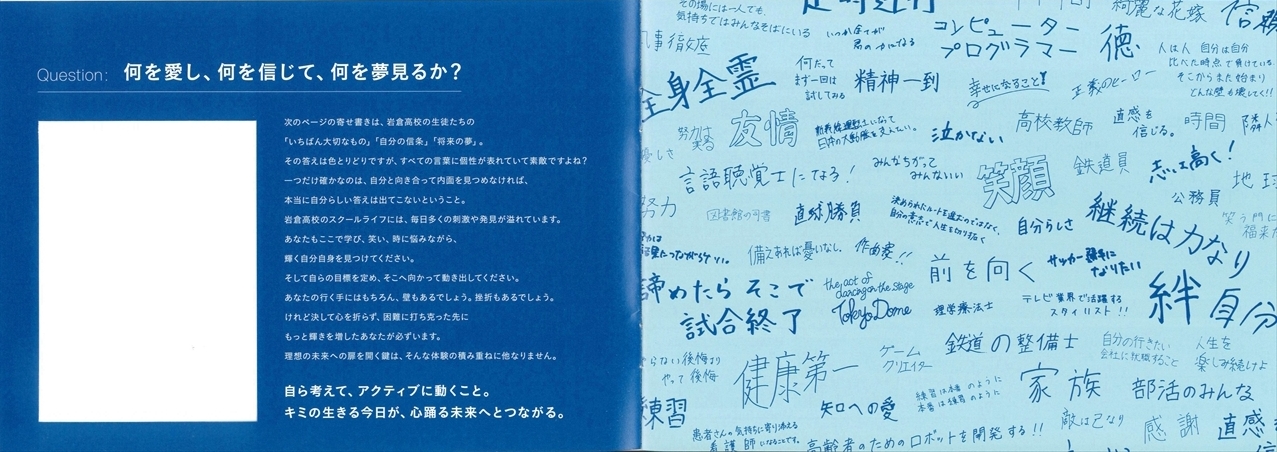 Question: 何を愛し、何を信じて、何を夢見るか？
次のページの寄せ書きは、岩倉高校の生徒たちの
「いちばん大切なもの」「自分の信条」「将来の夢」。
その答えは色とりどりですが、すべての言葉に個性が表れていて素敵ですよね？
一つだけ確かなのは、自分と向き合って内面を見つめなければ、
本当に自分らしい答えは出てこないということ。
岩倉高校のスクールライフには、毎日多くの刺激や発見が溢れています。
あなたもここで学び、笑い、時に悩みながら、
輝く自分自身を見つけてください。
そして自らの目標を定め、そこへ向かって動き出してください。
あなたの行く手にはもちろん、壁もあるでしょう。挫折もあるでしょう。
けれど決して心を折らず、困難に打ち克った先に
もっと輝きを増したあなたが必ずいます。
理想の未来への扉を開く鍵は、そんな体験の積み重ねに他なりません。
自ら考えて、アクティブに動くこと。
キミの生きる今日が、心踊る未来へとつながる。
その場には一人でも、
気持ちではみんなそばにいる
綺麗な花嫁
コンピューター
プログラマー
徳
人は人 自分は自分
比べた時点で負けている
そこからまた始まり
どんな壁も壊してく!!
全身全霊
何だって
まず一回は
試してみる
精神一到
幸せになること
正義のヒーロー
友情
泣かない
高校教師
直感を
信じる。
時間
言語聴覚士になる!
みんなちがって
みんないい
笑顔
鉄道員
志は高く!
公務員
努力
図書館の司書
直球勝負
決められたルートを進むのではなく、
自分の意志で人生を切り拓く
自分らしさ
継続は力なり
備えあれば憂いなし
作曲家!!
前を向く
サッカー選手に
なりたい
諦めたら そこで
試合終了
the act of
dancing on the stage
Tokyo Dome
理学療法士
テレビ業界で活躍する
スタイリスト!!
絆
自分
やらない後悔より
やって後悔
健康第一
ゲーム
クリエイター
鉄道の整備士
自分の行きたい
会社に就職すること
人生を
楽しみ続けよ
練習
知への愛
練習は本番のように
本番は練習のように
家族
部活のみんな
患者さんの気持ちに寄り添える
看護師になることです。
高齢者のためのロボットを開発する!!
敵は己なり
感謝
直感